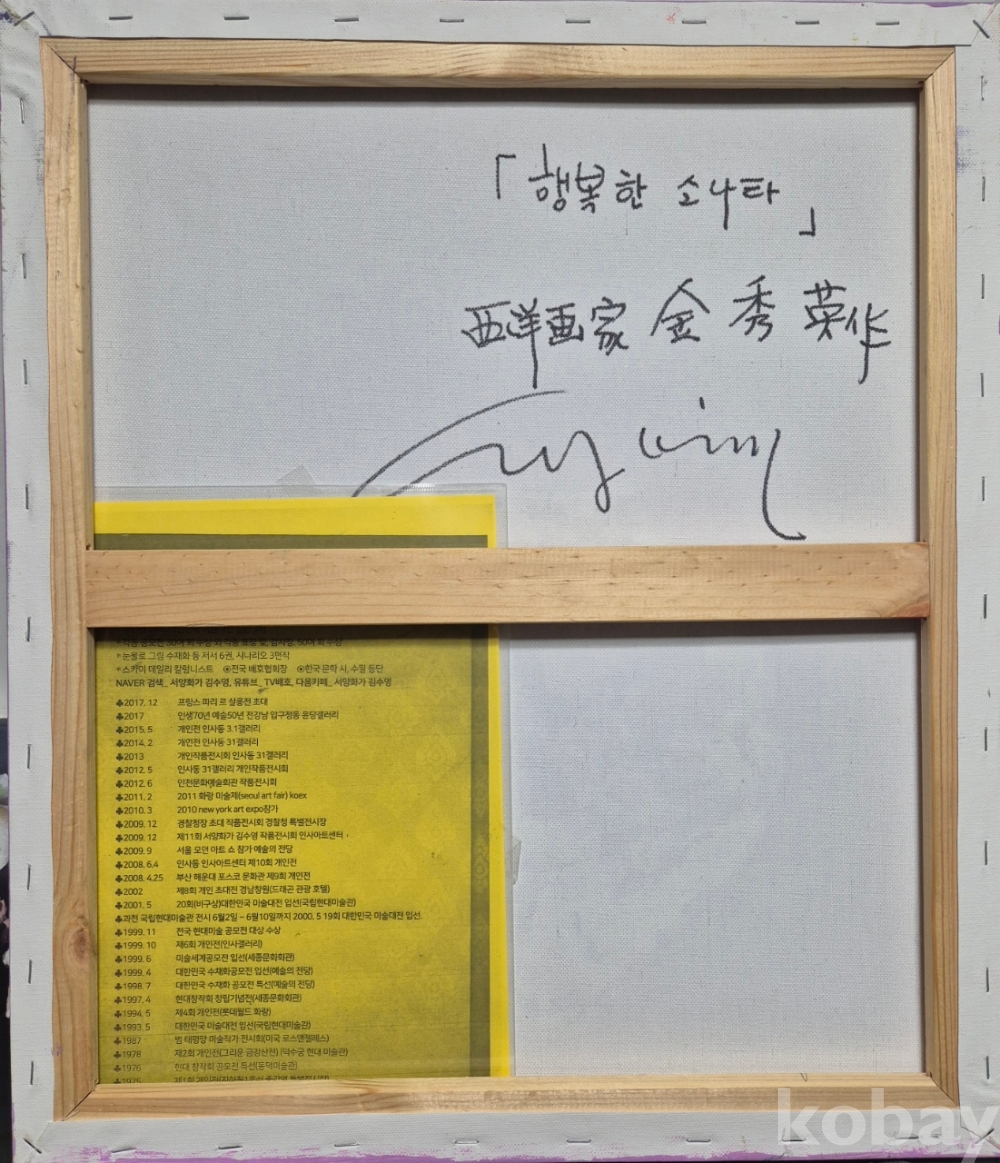 「행복한 소나타」
西洋画家 金秀英作
*눈물로 그림 수채화 등 저서 6권, 시나리오 3편작
*스카이 데일리 칼럼니스트 ◉전국 배호협회장 ◉한국 문학 시, 수필 등단
NAVER 검색_ 서양화가 김수영, 유튜브_ TV배호, 다음카페_ 서양화가 김수영
♣2017. 12 프랑스 파리 르 살롱전 초대
♣2017 인생70년 예술50년 전강남 압구정동 윤당갤러리
♣2015. 5 개인전 인사동 3.1갤러리
♣2014. 2 개인전 인사동 31갤러리
♣2013 개인작품전시회 인사동 31갤러리
♣2012. 5 인사동 31갤러리 개인작품전시회
♣2012. 6 인천문화예술회관 작품전시회
♣2011. 2 2011 화랑 미술제(seoul art fair) koex
♣2010. 3 2010 new york art expo참가
♣2009. 12 경찰청장 초대 작품전시회 경찰청 특별전시장
♣2009. 12 제11회 서양화가 김수영 작품전시회 인사아트센터
♣2009. 9 서울 모던 아트 쇼 참가 예술의 전당
♣2008. 6.4 인사동 인사아트센터 제10회 개인전
♣2008. 4.25 부산 해운대 포스코 문화관 제9회 개인전
♣2002 제8회 개인 초대전 경남창원(드래곤 관광 호텔)
♣2001. 5 20회(비구상)대한민국 미술대전 입선(국립현대미술관)
♣과천 국립현대미술관 전시 6월2일 ~ 6월10일까지 2000. 5 19회 대한민국 미술대전 입선.
♣1999. 11 전국 현대미술 공모전 대상 수상
♣1999. 10 제6회 개인전(인사갤러리)
♣1999. 6 미술세계공모전 입선(세종문화회관)
♣1999. 4 대한민국 수채화공모전 입선(예술의 전당)
♣1998. 7 대한민국 수채화 공모전 특선(예술의 전당)
♣1997. 4 현대창작회 창립기념전(세종문화회관)
♣1994. 5 제4회 개인전(롯데월드 화랑)
♣1993. 5 대한민국 미술대전 입선(국립현대미술관)
♣1987 범 태평양 미술작가 전시회(미국 로스앤젤레스)
♣1978 제2회 개인전(그리운 금강산전) (덕수궁 현대 미술관)
♣1976 현대 창작회 공모전 특선(동덕미술관)
♣1975
kobay